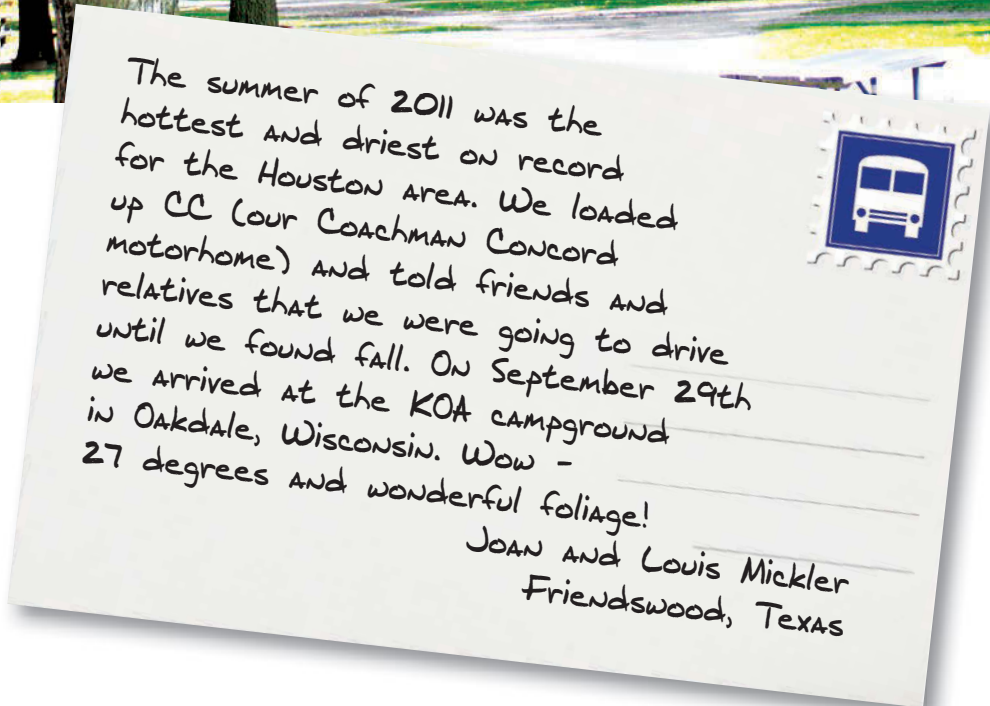 The summer of 2011 was the
hottest and driest on record
for the Houston area. We loaded
up CC (our Coachman Concord
motorhome) and told friends and
relatives that we were going to drive
until we found fall. On September 29th
we arrived at the KOA campground
in Oakdale, Wisconsin. Wow -
27 degrees and wonderful foliage!
Joan and Louis Mickler
Friendswood, Texas